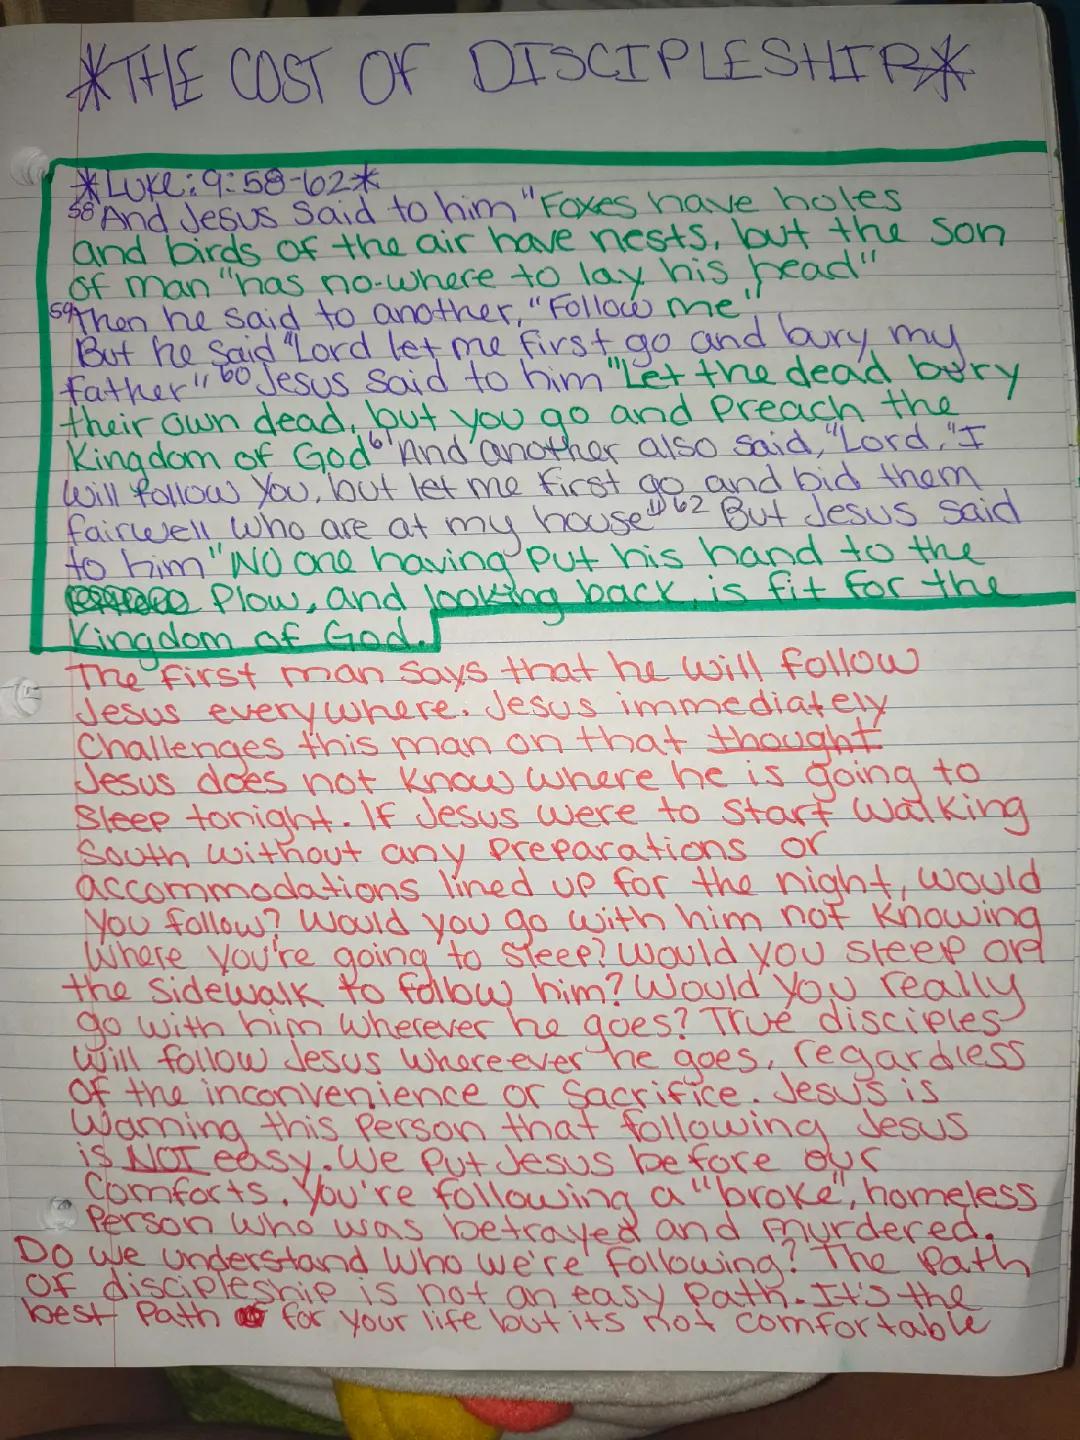 *THE COST OF DISCIPLESHIP*
*Luke: 9:58-62*
58 And Jesus said to him "Foxes have holes
and birds of the air have nests, but the son
of man "has no-where to lay his head"
59 Then he said to another, "Follow me"
But he said "Lord let me first go and bury my
father" 60 Jesus said to him "Let the dead bury
their own dead, but you go and Preach the
Kingdom of God" 61 And another also said, "Lord, "I
will follow you, but let me first go and bid them
fairwell who are at my house" 62 But Jesus said
to him "NO one having put his hand to the
Plow, and looking back, is fit for the
Kingdom of God.
The first man says that he will follow
Jesus everywhere. Jesus immediately
Challenges this man on that thought
Jesus does not know where he is going to
Sleep tonight. If Jesus were to start walking
South without any Preparations or
accommodations lined up for the night, would
You follow? Would you go with him not knowing
Where you're going to sleep? Would you sleep on
the sidewalk to follow him? Would you really
go with him wherever he goes? True disciples
will follow Jesus whereever he goes, regardless
of the inconvenience or sacrifice. Jesus is
Warning this person that following Jesus
is NOT easy. We put Jesus before our
Comforts. You're following a "broke", homeless
Person who was betrayed and murdered.
Do we understand who we're following? The Path
Of discipleship is not an easy path. It's the
best Path for your life but its not comfortable